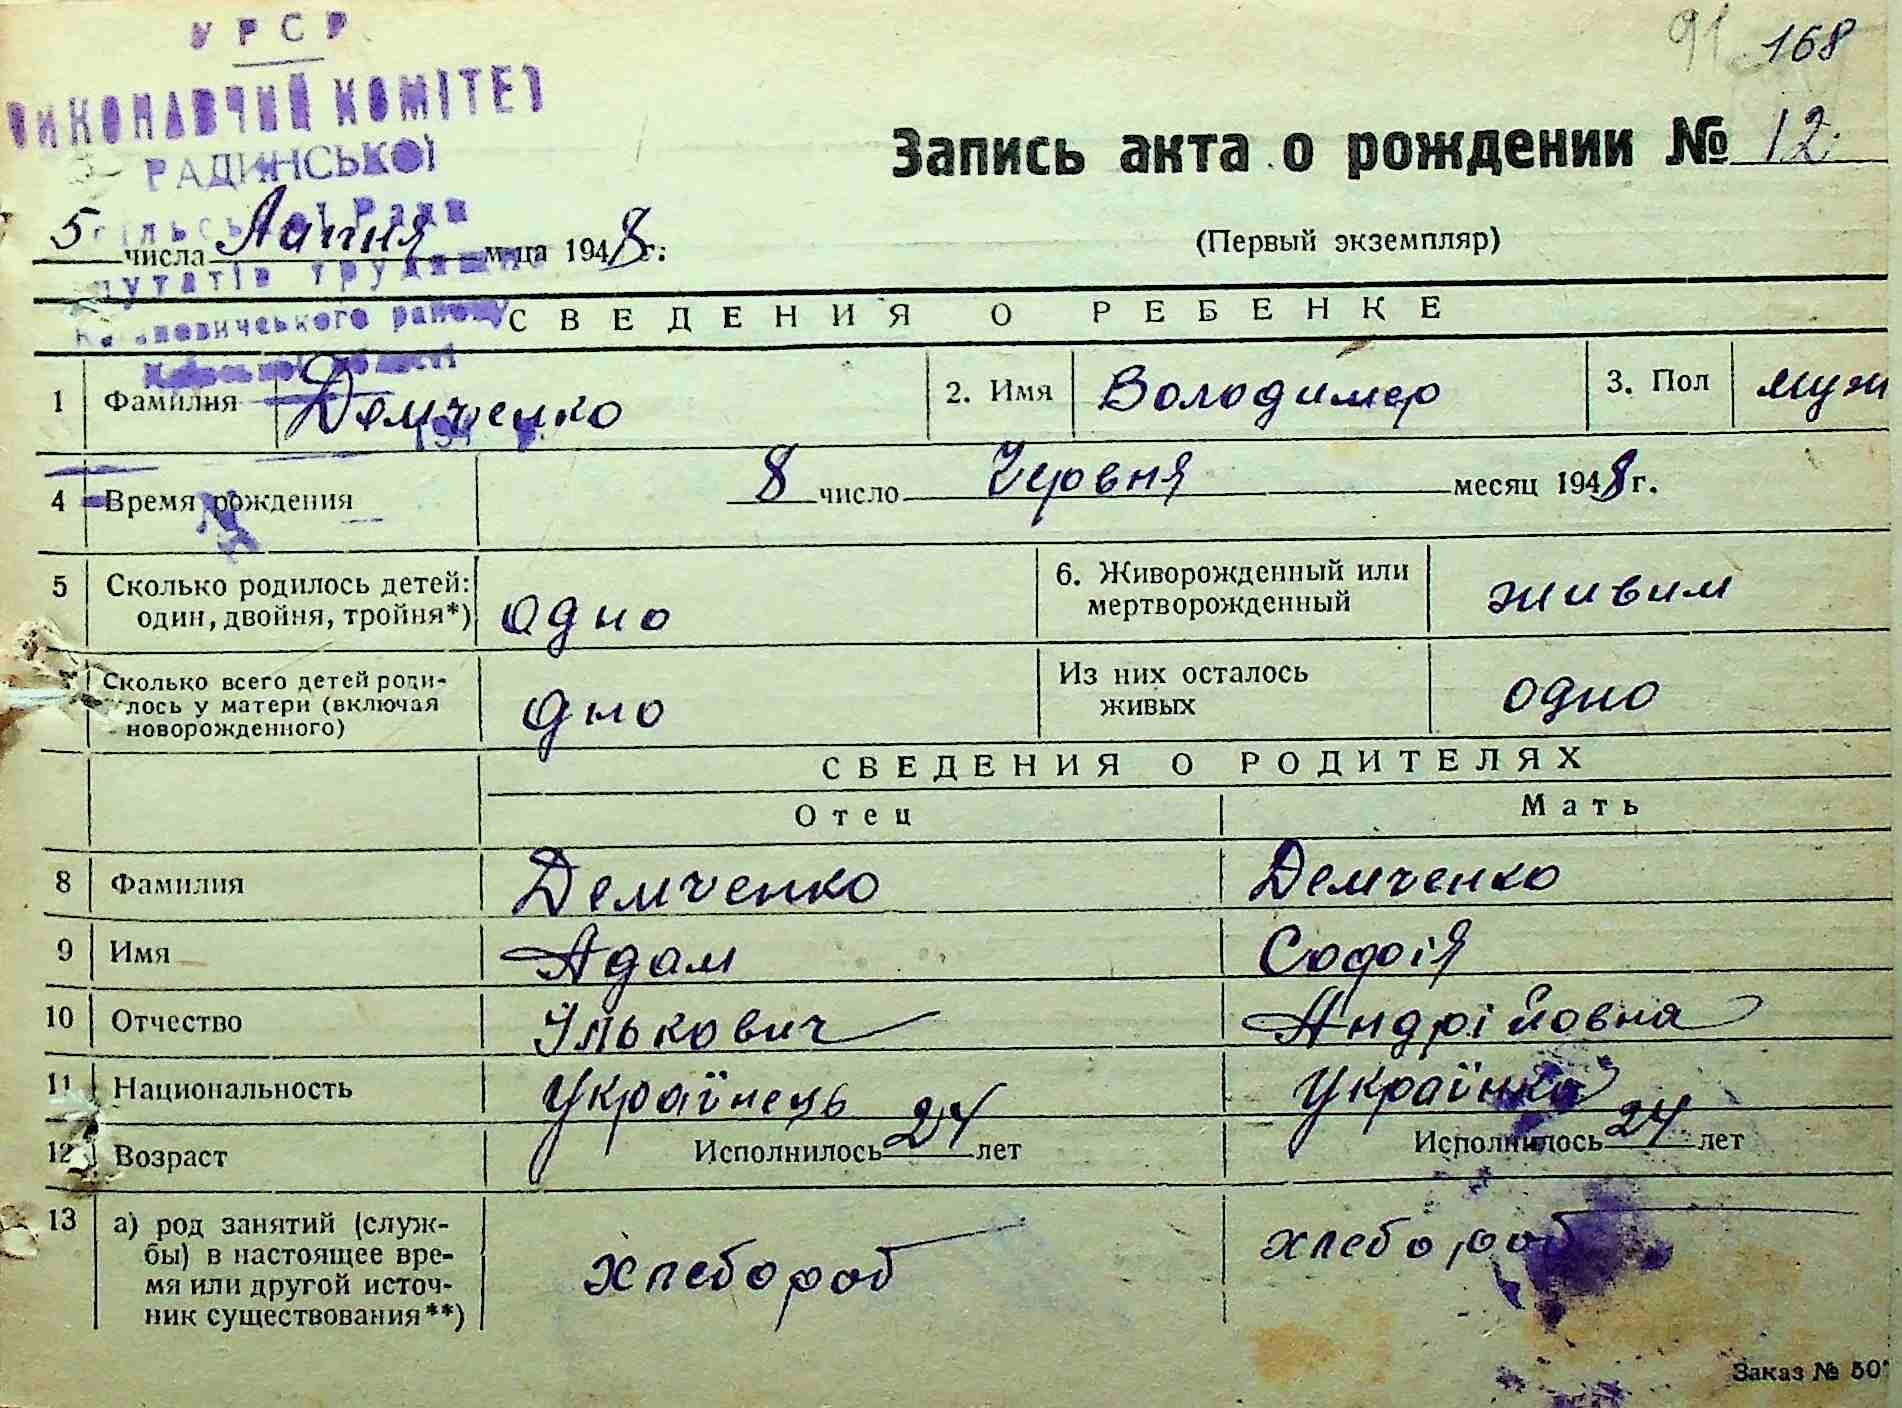 УРСР
91 168
ВИКОНАВЧИЙ КОМІТЕТ
РАДИНСЬКОЇ
Запись акта о рождении № 12.
5 числа Липня м-ца 1948 г.
(Первый экземпляр)
СВЕДЕНИЯ О РЕБЕНКЕ
1 Фамилия Демченко 2. Имя Володимер 3. Пол муж
4 Время рождения 8 число Червня месяц 1948 г.
5 Сколько родилось детей: один, двойня, тройня*) одно 6. Живорожденный или мертворожденный живим
Сколько всего детей родилось у матери (включая новорожденного) дно Из них осталось живых одно
СВЕДЕНИЯ О РОДИТЕЛЯХ
Отец Мать
8 Фамилия Демченко Демченко
9 Имя Адам Софія
10 Отчество Ількович Андрійовна
11 Национальность Українець Українка
12 Возраст Исполнилось 24 лет Исполнилось 24 лет
13 а) род занятий (служ-
бы) в настоящее вре-
мя или другой источ-
ник существования**) хлебороб хлебороб
Заказ № 50